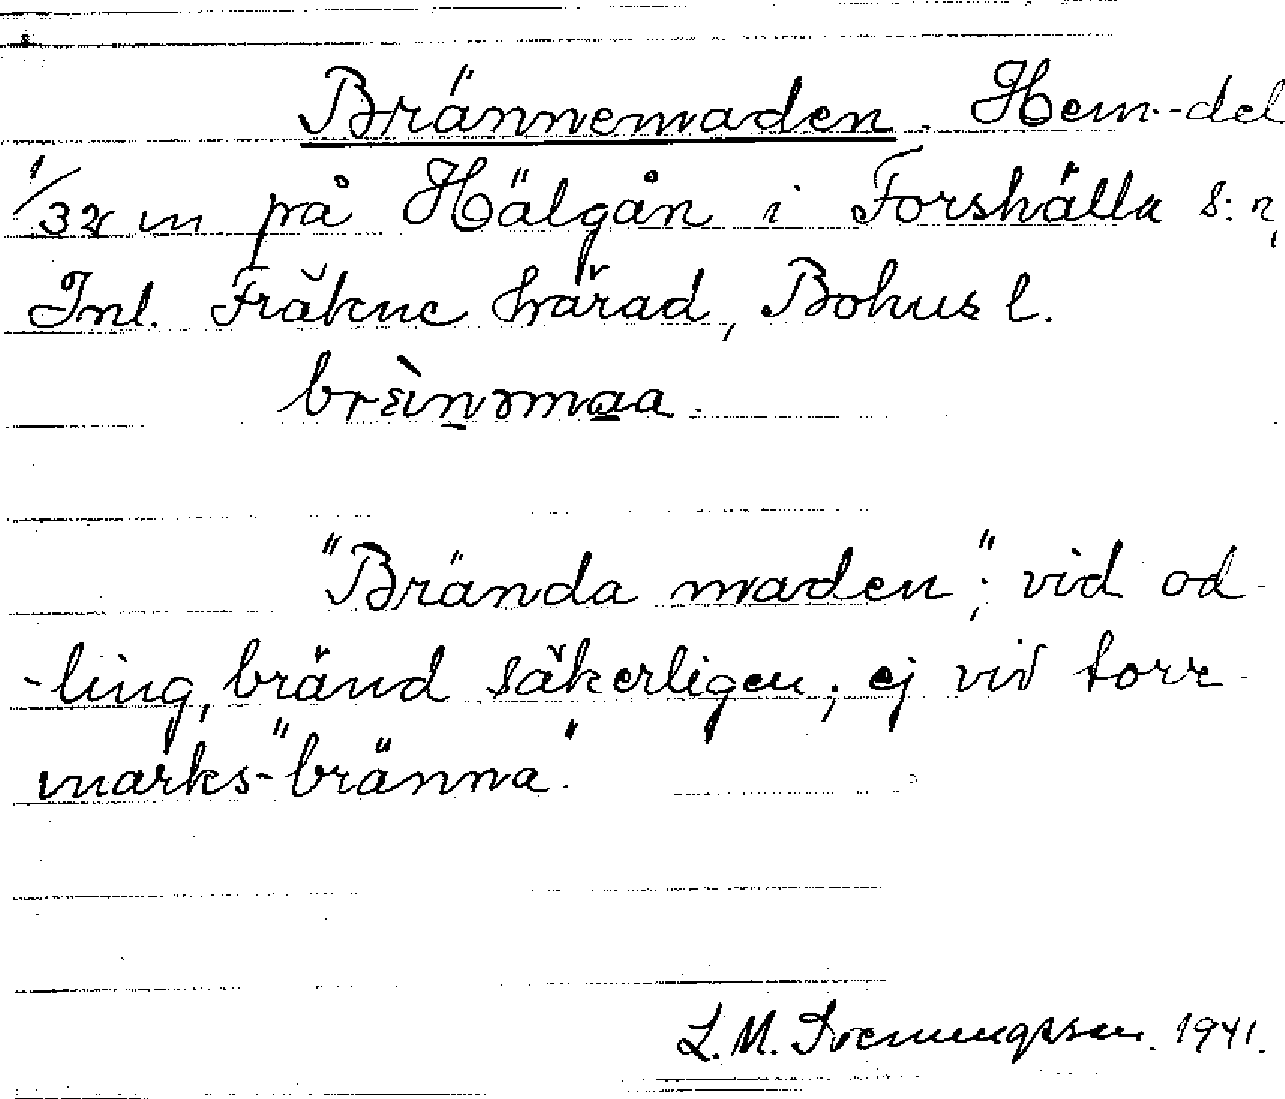 Brännemaden. Hem.-del
1/32 m på Hälgån i Forshälla s:n,
Inl. Fräkne härad, Bohus l.
"Brända maden"; vid od-
-ling, bränd säkerligen; ej vid torr-
marks-"bränna".
L. M. Svenungsson. 1941.